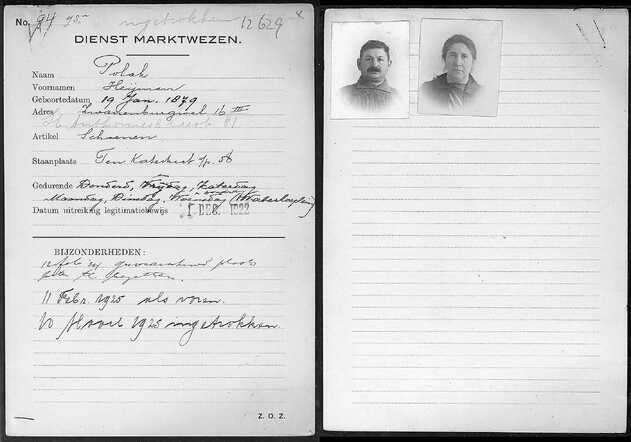 No. 94 ingetrokken 12629
DIENST MARKTWEZEN.
Naam Polak
Voornamen Heijman
Geboortedatum 19 Jan. 1879
Adres Zwanenburgwal 16 III
Artikel Schoenen
Staanplaats Ten Katestraat 56
Gedurende Donderd, Vrijdag, Zaterdag
Maandag, Dinsdag, Woensdag (Waterlooplein)
Datum uitreiking legitimatiebewijs 1 DEC. 1922
BIJZONDERHEDEN:
12 feb gewaarschuwd plaats
11 Febr. 1925 als voren.
20 Maart 1925 ingetrokken.
Z. O. Z.